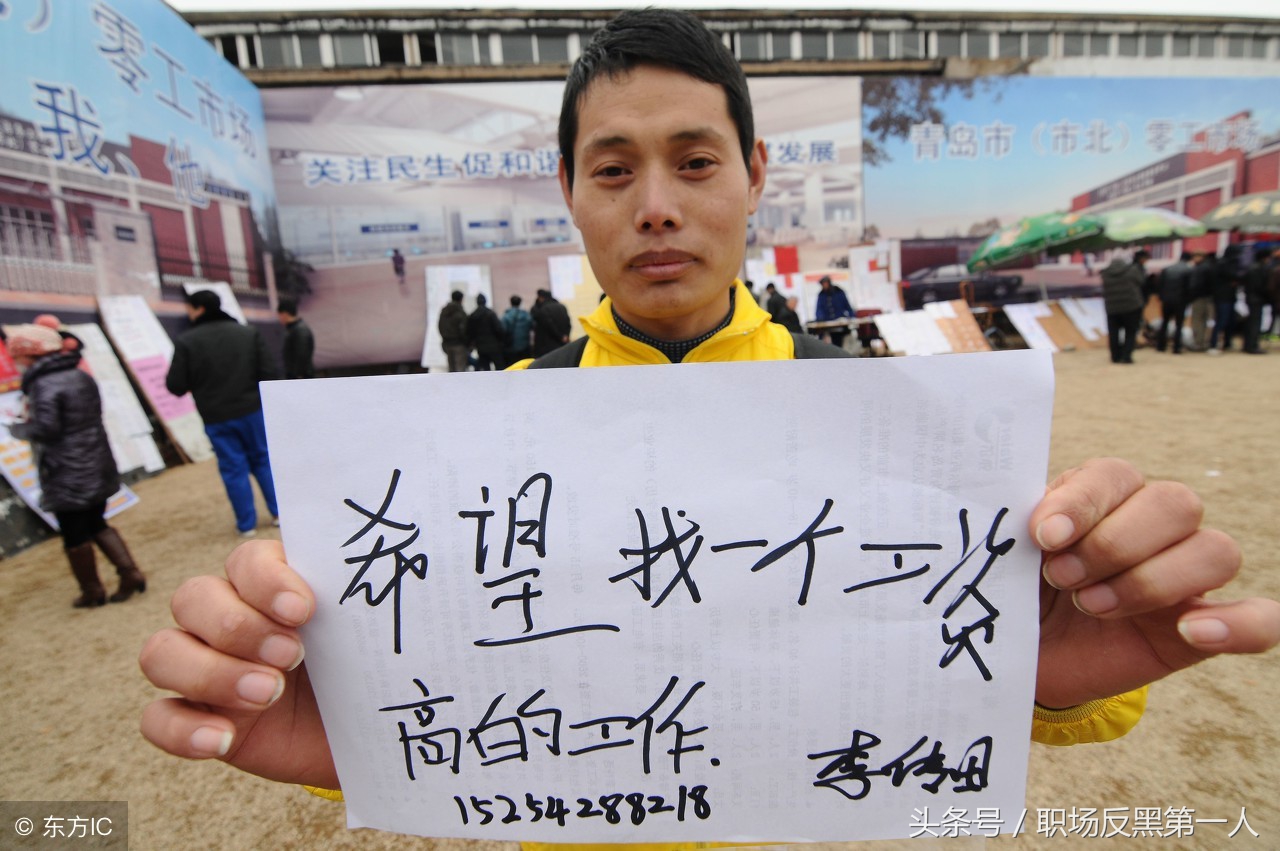 零工市场
我、他
关注民生促和谐
发展
青岛市（市北）零工市场
希望找一个工资
高的工作.
李传田
15254288218
© 东方IC
头条号 / 职场反黑第一人